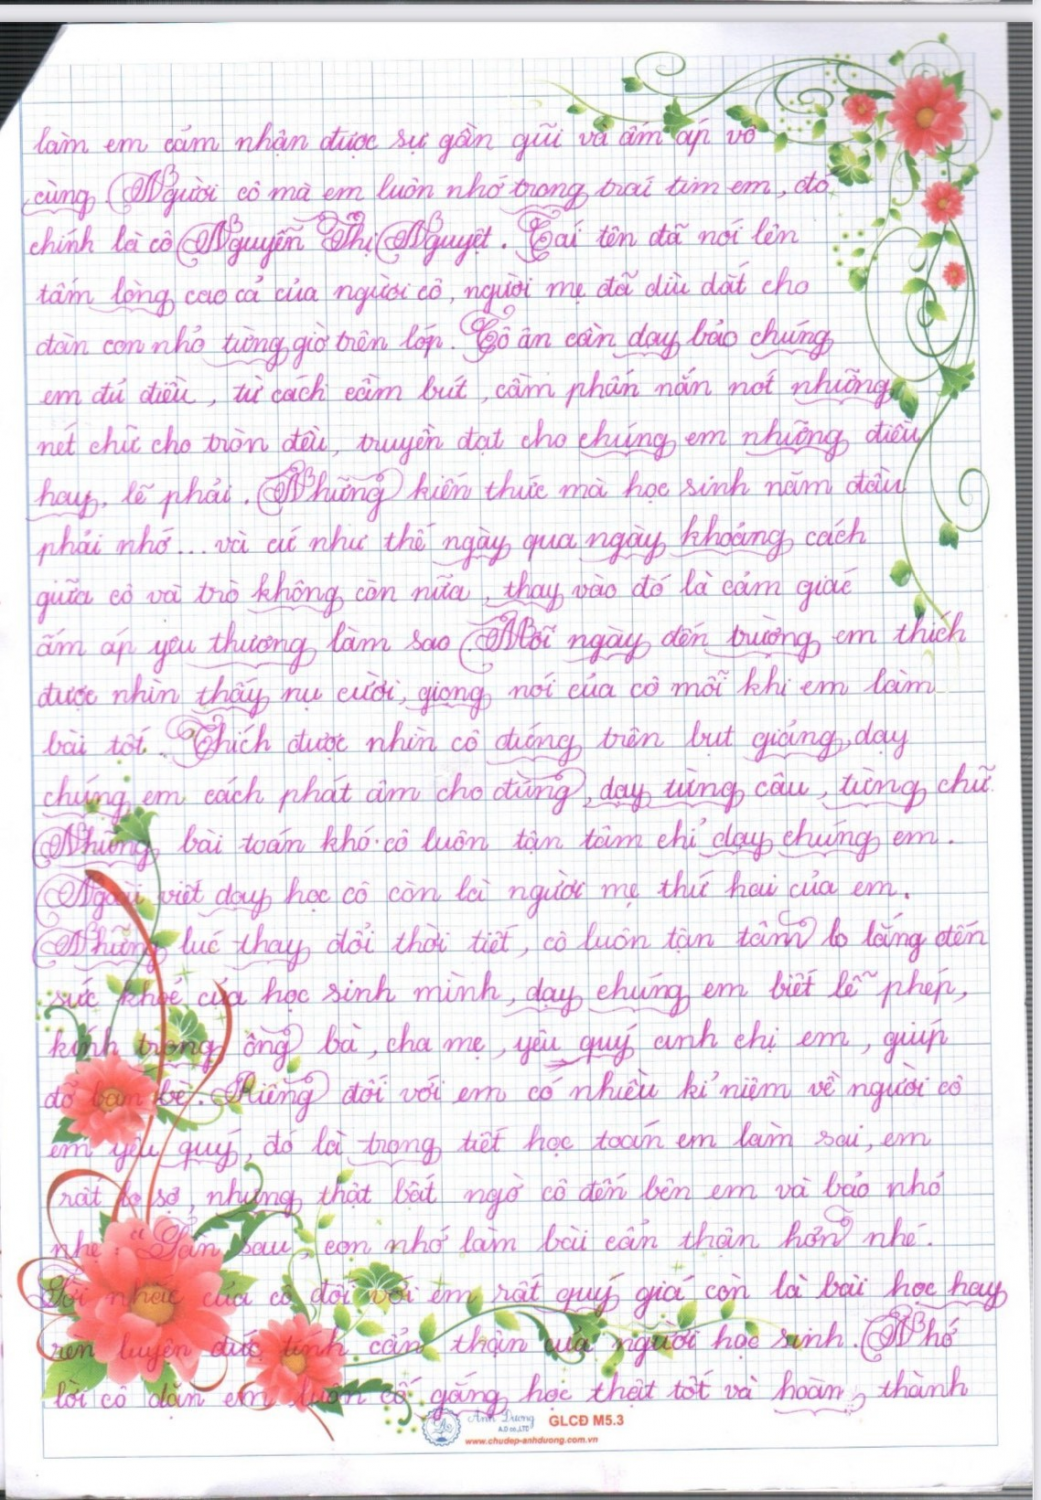 làm em cảm nhận được sự gần gũi và ấm áp vô
cùng. Người cô mà em luôn nhớ trong trái tim em, đó
chính là cô Nguyễn Thị Nguyệt. Cái tên đã nói lên
tấm lòng cao cả của người cô, người mẹ đã dìu dắt cho
đàn con nhỏ từng giờ trên lớp. Cô ân cần dạy bảo chúng
em đủ điều, từ cách cầm bút, cầm phấn nắn nót những
nét chữ cho tròn đều, truyền đạt cho chúng em những điều
hay, lẽ phải. Những kiến thức mà học sinh năm đầu
phải nhớ... và cứ như thế ngày qua ngày khoảng cách
giữa cô và trò không còn nữa, thay vào đó là cảm giác
ấm áp yêu thương làm sao. Mỗi ngày đến trường em thích
được nhìn thấy nụ cười, giọng nói của cô mỗi khi em làm
bài tốt. Thích được nhìn cô đứng trên bụt giảng, dạy
chúng em cách phát âm cho đúng, dạy từng câu, từng chữ.
Những bài toán khó cô luôn tận tâm chỉ dạy chúng em.
Ngoài việt dạy học cô còn là người mẹ thứ hai của em.
Những lúc thay đổi thời tiết, cô luôn tận tâm lo lắng đến
sức khoẻ của học sinh mình, dạy chúng em biết lễ phép,
kính trọng ông bà, cha mẹ, yêu quý anh chị em, giúp
đỡ bạn bè. Riêng đối với em có nhiều kỉ niệm về người cô
em yêu quý, đó là trong tiết học toán em làm sai, em
rất lo sợ, nhưng thật bất ngờ cô đến bên em và bảo nhỏ
nhẹ: "Lần sau, con nhớ làm bài cẩn thận hơn nhé.
Lời nhắc của cô đối với em rất quý giá còn là bài học hay
rèn luyện đức tính cẩn thận của người học sinh. Nhớ
lời cô dặn em luôn cố gắng học thật tốt và hoàn thành
Ánh Dương
GLCĐ M5.3
www.chudep-anhduong.com.vn